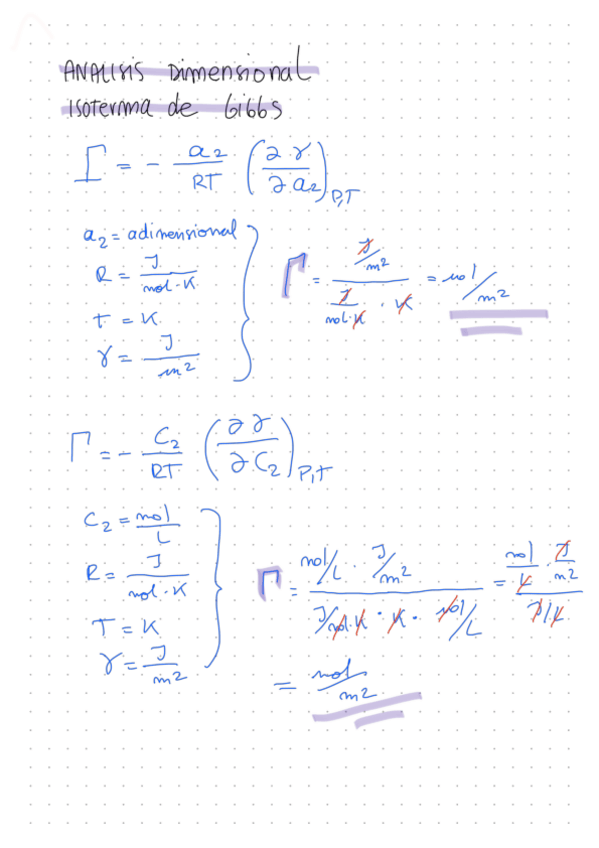 ANALISIS Dimensional
ISOTERMA de Gibbs
Γ = - a2/RT (∂γ/∂a2)P,T
a2 = adimensional
R = J/mol·K
T = K
γ = J/m2
Γ = (J/m2)/(J/mol·K · K) = mol/m2
Γ = - C2/RT (∂γ/∂C2)P,T
C2 = mol/L
R = J/mol·K
T = K
γ = J/m2
Γ = (mol/L · J/m2)/(J/mol·K · K · mol/L) = (mol/L · J/m2)/(J/L)
= mol/m2